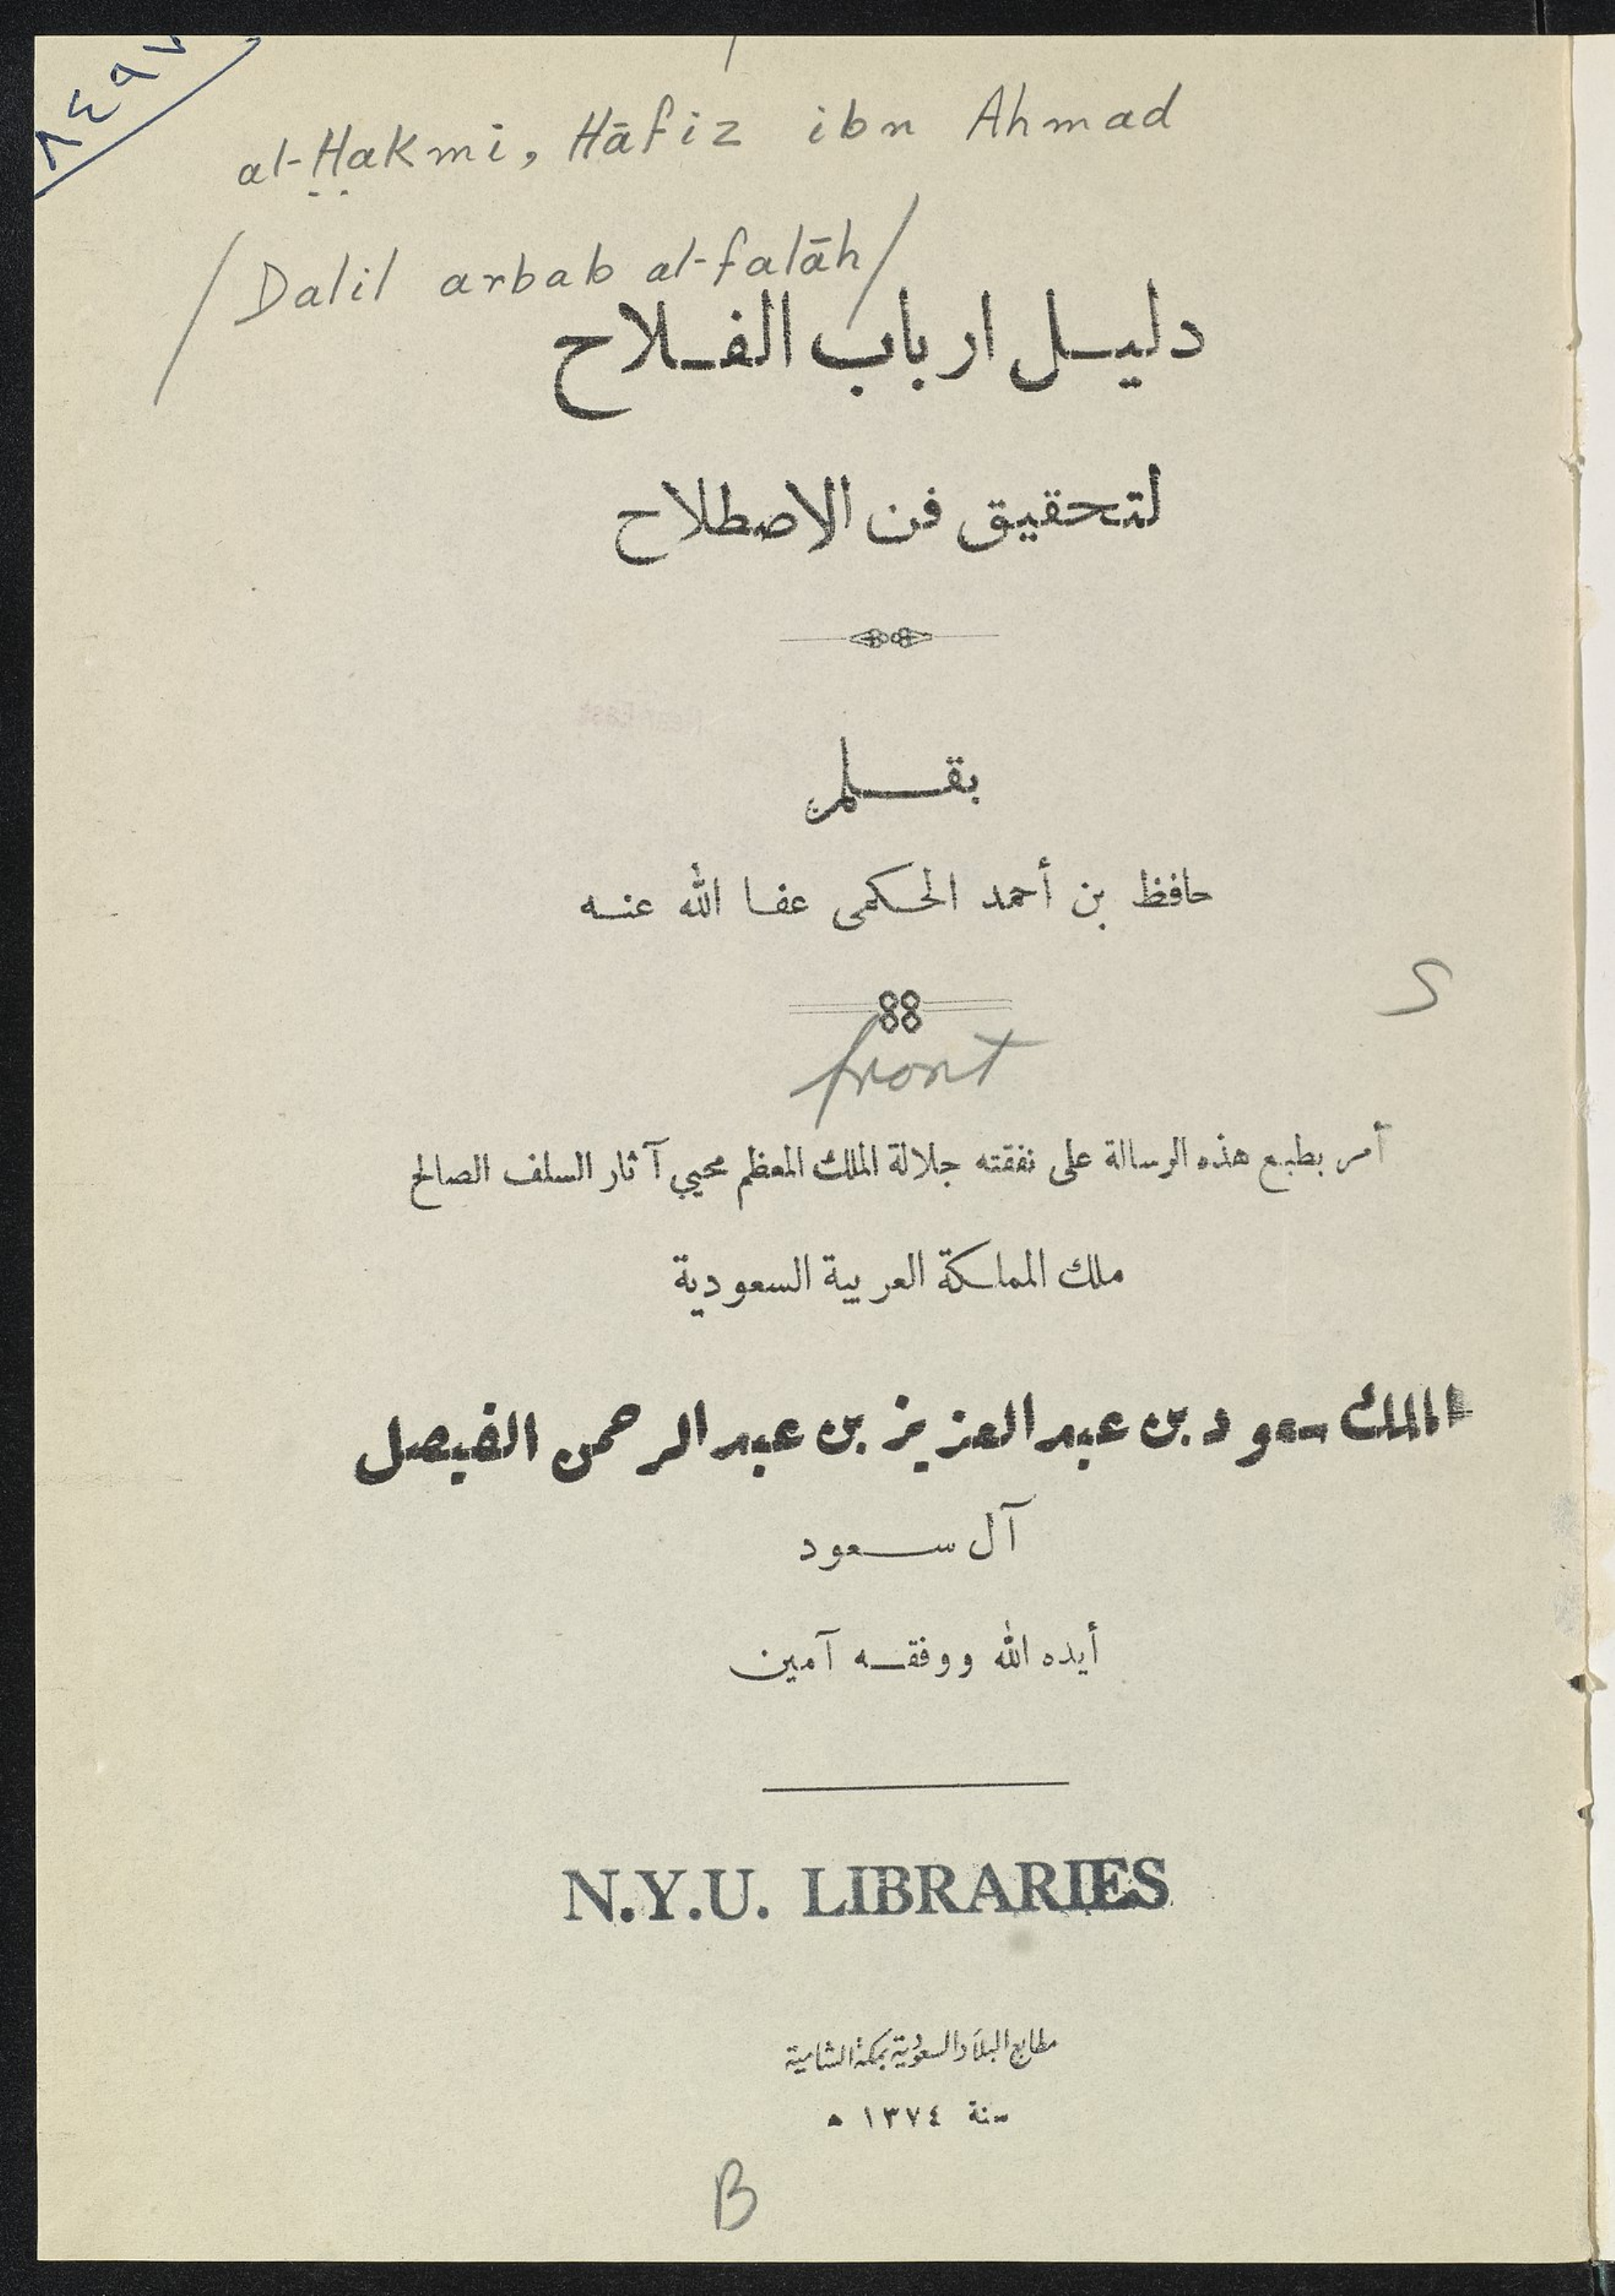 ٨٤٩
al-Ḥakmi, Hāfiz ibn Ahmad
/ Dalil arbab al-falāh /
دليل ارباب الفلاح
لتحقيق فن الاصطلاح
بقلم
حافظ بن أحمد الحكمى عفا الله عنه
S
front
أمر بطبع هذه الرسالة على نفقته جلالة الملك المعظم محيي آثار السلف الصالح
ملك المملكة العربية السعودية
الملك سعود بن عبد العزيز بن عبد الرحمن الفيصل
آل سعود
أيده الله ووفقه آمين
N.Y.U. LIBRARIES
مطابع البلاد السعودية بمكة الشامية
سنة ١٣٧٤ ه
B